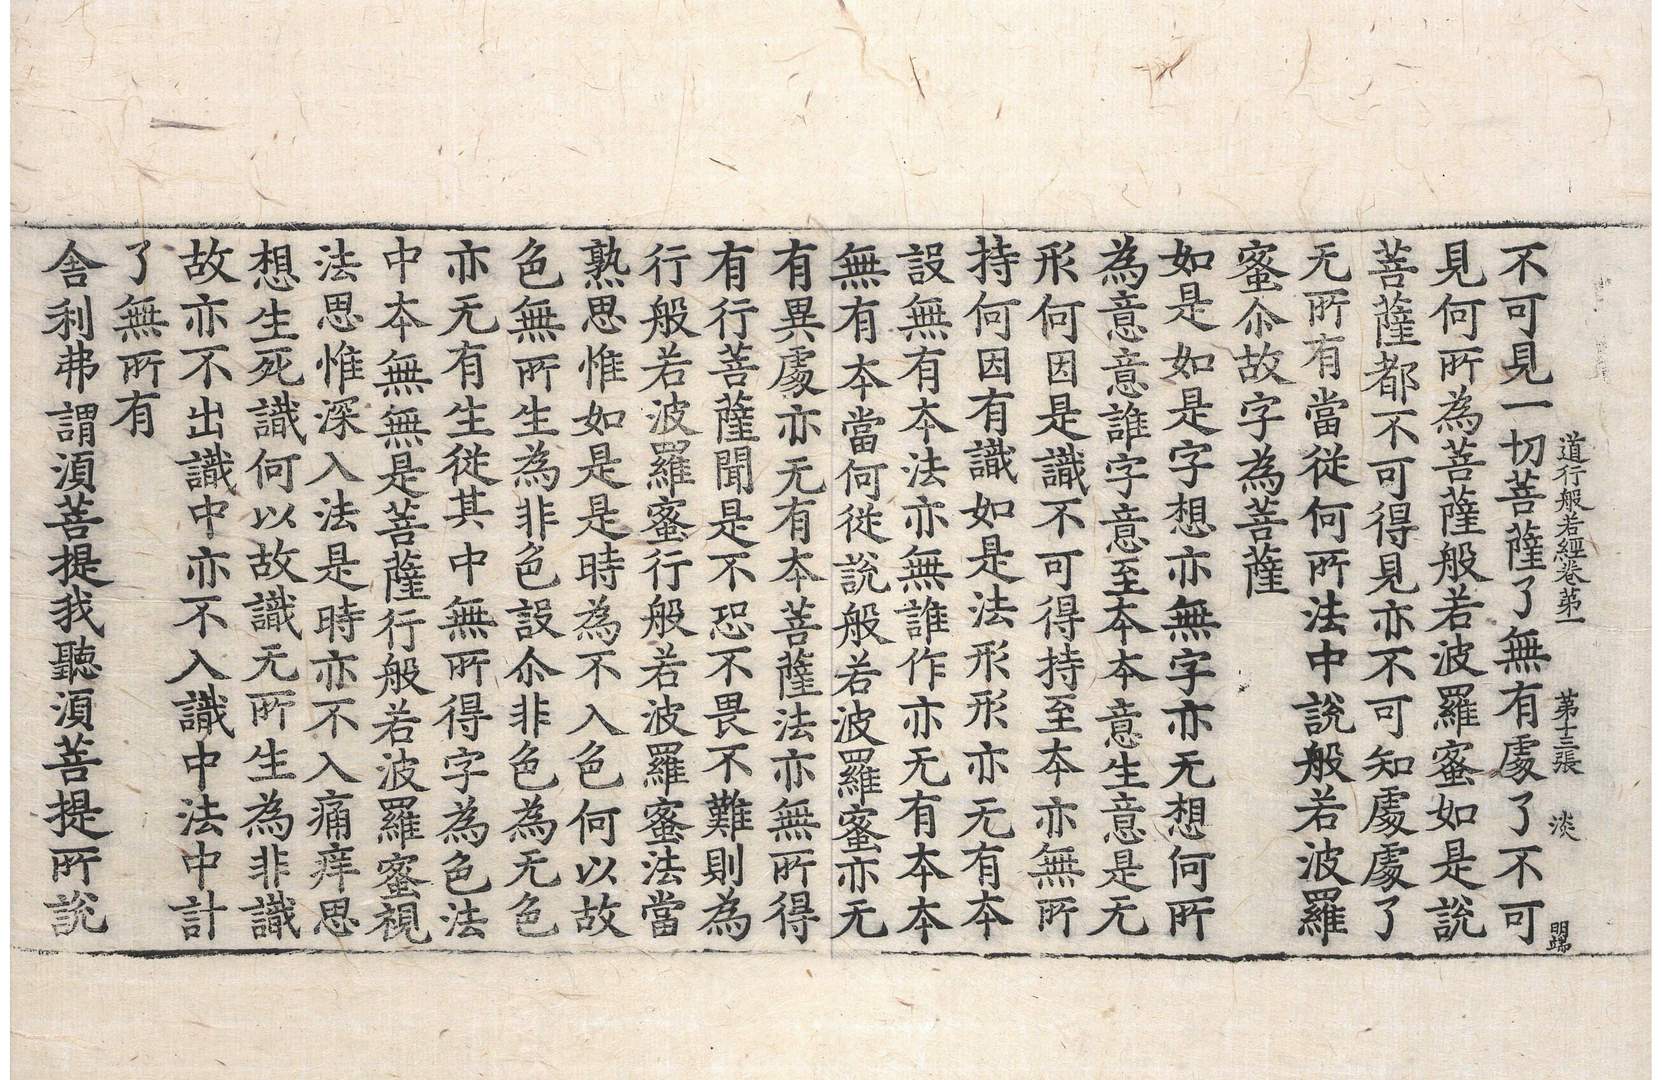 道行般若經卷第一 第十三張 淡 明端
不可見一切菩薩了無有處了不可
見何所為菩薩般若波羅蜜如是說
菩薩都不可得見亦不可知處處了
无所有當從何所法中說般若波羅
蜜尒故字為菩薩
如是如是字想亦無字亦无想何所
為意意誰字意至本本意生意是无
形何因是識不可得持至本亦無所
持何因有識如是法形形亦无有本
設無有本法亦無誰作亦无有本本
無有本當何從說般若波羅蜜亦无
有異處亦无有本菩薩法亦無所得
有行菩薩聞是不恐不畏不難則為
行般若波羅蜜行般若波羅蜜法當
熟思惟如是是時為不入色何以故
色無所生為非色設尒非色為无色
亦无有生從其中無所得字為色法
中本無無是菩薩行般若波羅蜜視
法思惟深入法是時亦不入痛痒思
想生死識何以故識无所生為非識
故亦不出識中亦不入識中法中計
了無所有
舍利弗謂湏菩提我聽湏菩提所說